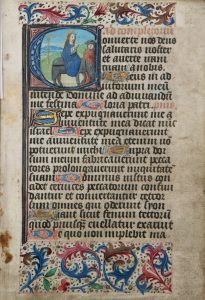 Ad completoriu
onuerte nos deus
salutaris noster
et auerte iram
tuam a nobis
Deus in ad
iutorium meum
intende Domine ad adiuuandum
me festina Gloria patri psalmus
Sepe expugnauerunt me a
iuuentute mea dicat nunc
israel Sepe expugnauerunt
me a iuuentute mea etenim non
potuerunt michi Supra dorsum
meum fabricauerunt pecca
tores prolongauerunt iniquitate
suam Dominus iustus con
cidet ceruices peccatorum confun
dantur et conuertantur retror
sum omnes qui oderunt syon
fiant sicut fenum tectorum
quod priusquam euellatur exaruit
De quo non impleuit ma